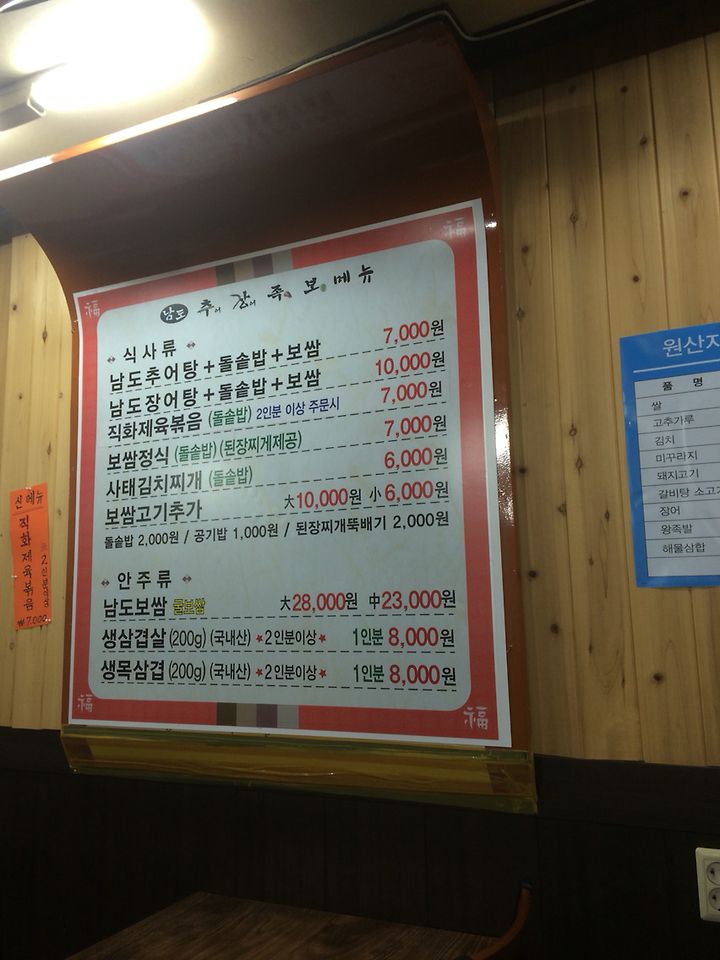 福
福
남도 추어 장어 족 보 메뉴
식사류
남도추어탕+돌솥밥+보쌈 7,000원
남도장어탕+돌솥밥+보쌈 10,000원
직화제육볶음 (돌솥밥) 2인분 이상 주문시 7,000원
보쌈정식 (돌솥밥) (된장찌게제공) 7,000원
사태김치찌개 (돌솥밥) 6,000원
보쌈고기추가 大10,000원 小6,000원
돌솥밥 2,000원 / 공기밥 1,000원 / 된장찌개뚝배기 2,000원
안주류
남도보쌈 굴보쌈 大28,000원 中23,000원
생삼겹살 (200g) (국내산) ★2인분이상★ 1인분 8,000원
생목삼겹 (200g) (국내산) ★2인분이상★ 1인분 8,000원
福
福
신메뉴
직화제육볶음
2인분이상
₩7,000
원산지
품 명
쌀
고추가루
김치
미꾸라지
돼지고기
갈비탕 소고기
장어
왕족발
해물삼합